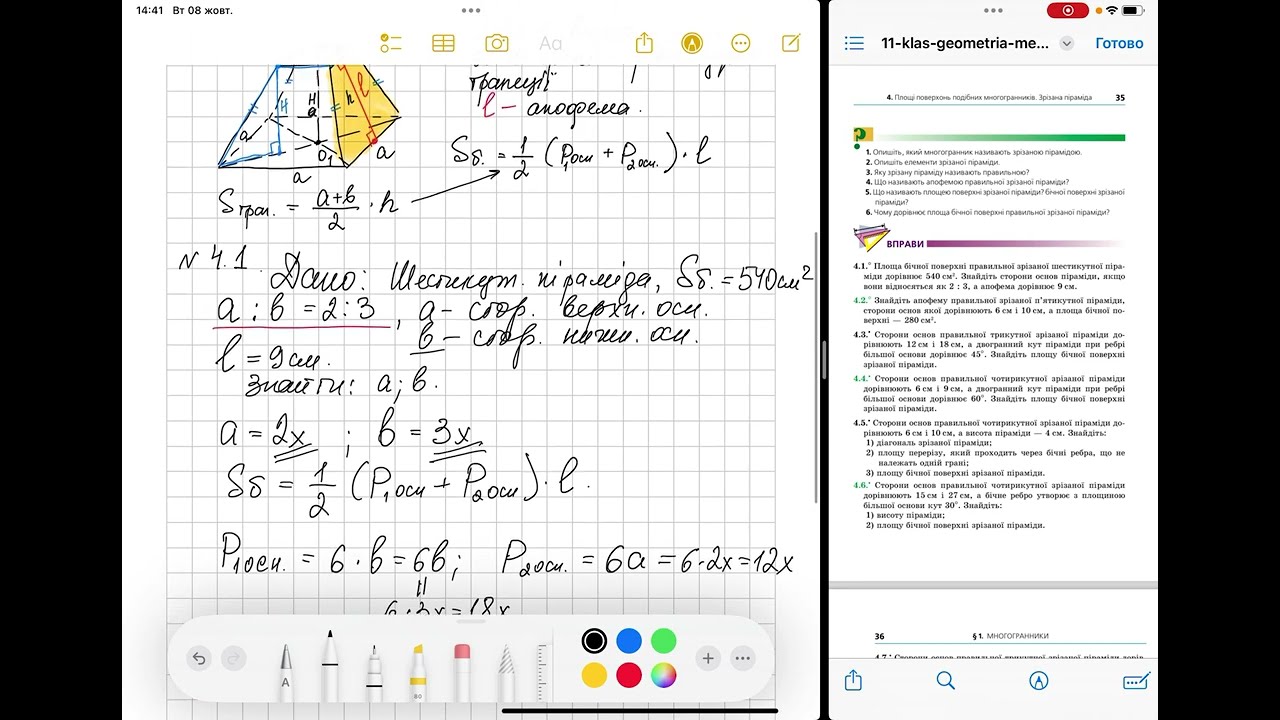 14:41 Вт 08 жовт.
Aa
трапеції
l – апофема.
H
H
h
l
a
a
O₁
a
a
Sб. = 1/2 (P₁осн + P₂осн.) · l
Sтрап. = (a+b)/2 · h
N 4.1. Дано: Шестикут. піраміда, Sб. = 540 см²
a : b = 2 : 3, a – стор. верхн. осн.
b – стор. нижн. осн.
l = 9 см.
Знайти: a; b.
a = 2x ; b = 3x
Sб = 1/2 (P₁осн + P₂осн) · l.
P₁осн. = 6 · b = 6b; P₂осн. = 6a = 6·2x = 12x
6·3x = 18x
A
80
11-klas-geometria-me...
Готово
4. Площі поверхонь подібних многогранників. Зрізана піраміда 35
?
1. Опишіть, який многогранник називають зрізаною пірамідою.
2. Опишіть елементи зрізаної піраміди.
3. Яку зрізану піраміду називають правильною?
4. Що називають апофемою правильної зрізаної піраміди?
5. Що називають площею поверхні зрізаної піраміди? бічної поверхні зрізаної
піраміди?
6. Чому дорівнює площа бічної поверхні правильної зрізаної піраміди?
ВПРАВИ
4.1.° Площа бічної поверхні правильної зрізаної шестикутної піра-
міди дорівнює 540 см². Знайдіть сторони основ піраміди, якщо
вони відносяться як 2 : 3, а апофема дорівнює 9 см.
4.2.° Знайдіть апофему правильної зрізаної п'ятикутної піраміди,
сторони основ якої дорівнюють 6 см і 10 см, а площа бічної по-
верхні — 280 см².
4.3.• Сторони основ правильної трикутної зрізаної піраміди до-
рівнюють 12 см і 18 см, а двогранний кут піраміди при ребрі
більшої основи дорівнює 45°. Знайдіть площу бічної поверхні
зрізаної піраміди.
4.4.• Сторони основ правильної чотирикутної зрізаної піраміди
дорівнюють 6 см і 9 см, а двогранний кут піраміди при ребрі
більшої основи дорівнює 60°. Знайдіть площу бічної поверхні
зрізаної піраміди.
4.5.• Сторони основ правильної чотирикутної зрізаної піраміди до-
рівнюють 6 см і 10 см, а висота піраміди — 4 см. Знайдіть:
1) діагональ зрізаної піраміди;
2) площу перерізу, який проходить через бічні ребра, що не
належать одній грані;
3) площу бічної поверхні зрізаної піраміди.
4.6.• Сторони основ правильної чотирикутної зрізаної піраміди
дорівнюють 15 см і 27 см, а бічне ребро утворює з площиною
більшої основи кут 30°. Знайдіть:
1) висоту піраміди;
2) площу бічної поверхні зрізаної піраміди.
36 § 1. МНОГОГРАННИКИ